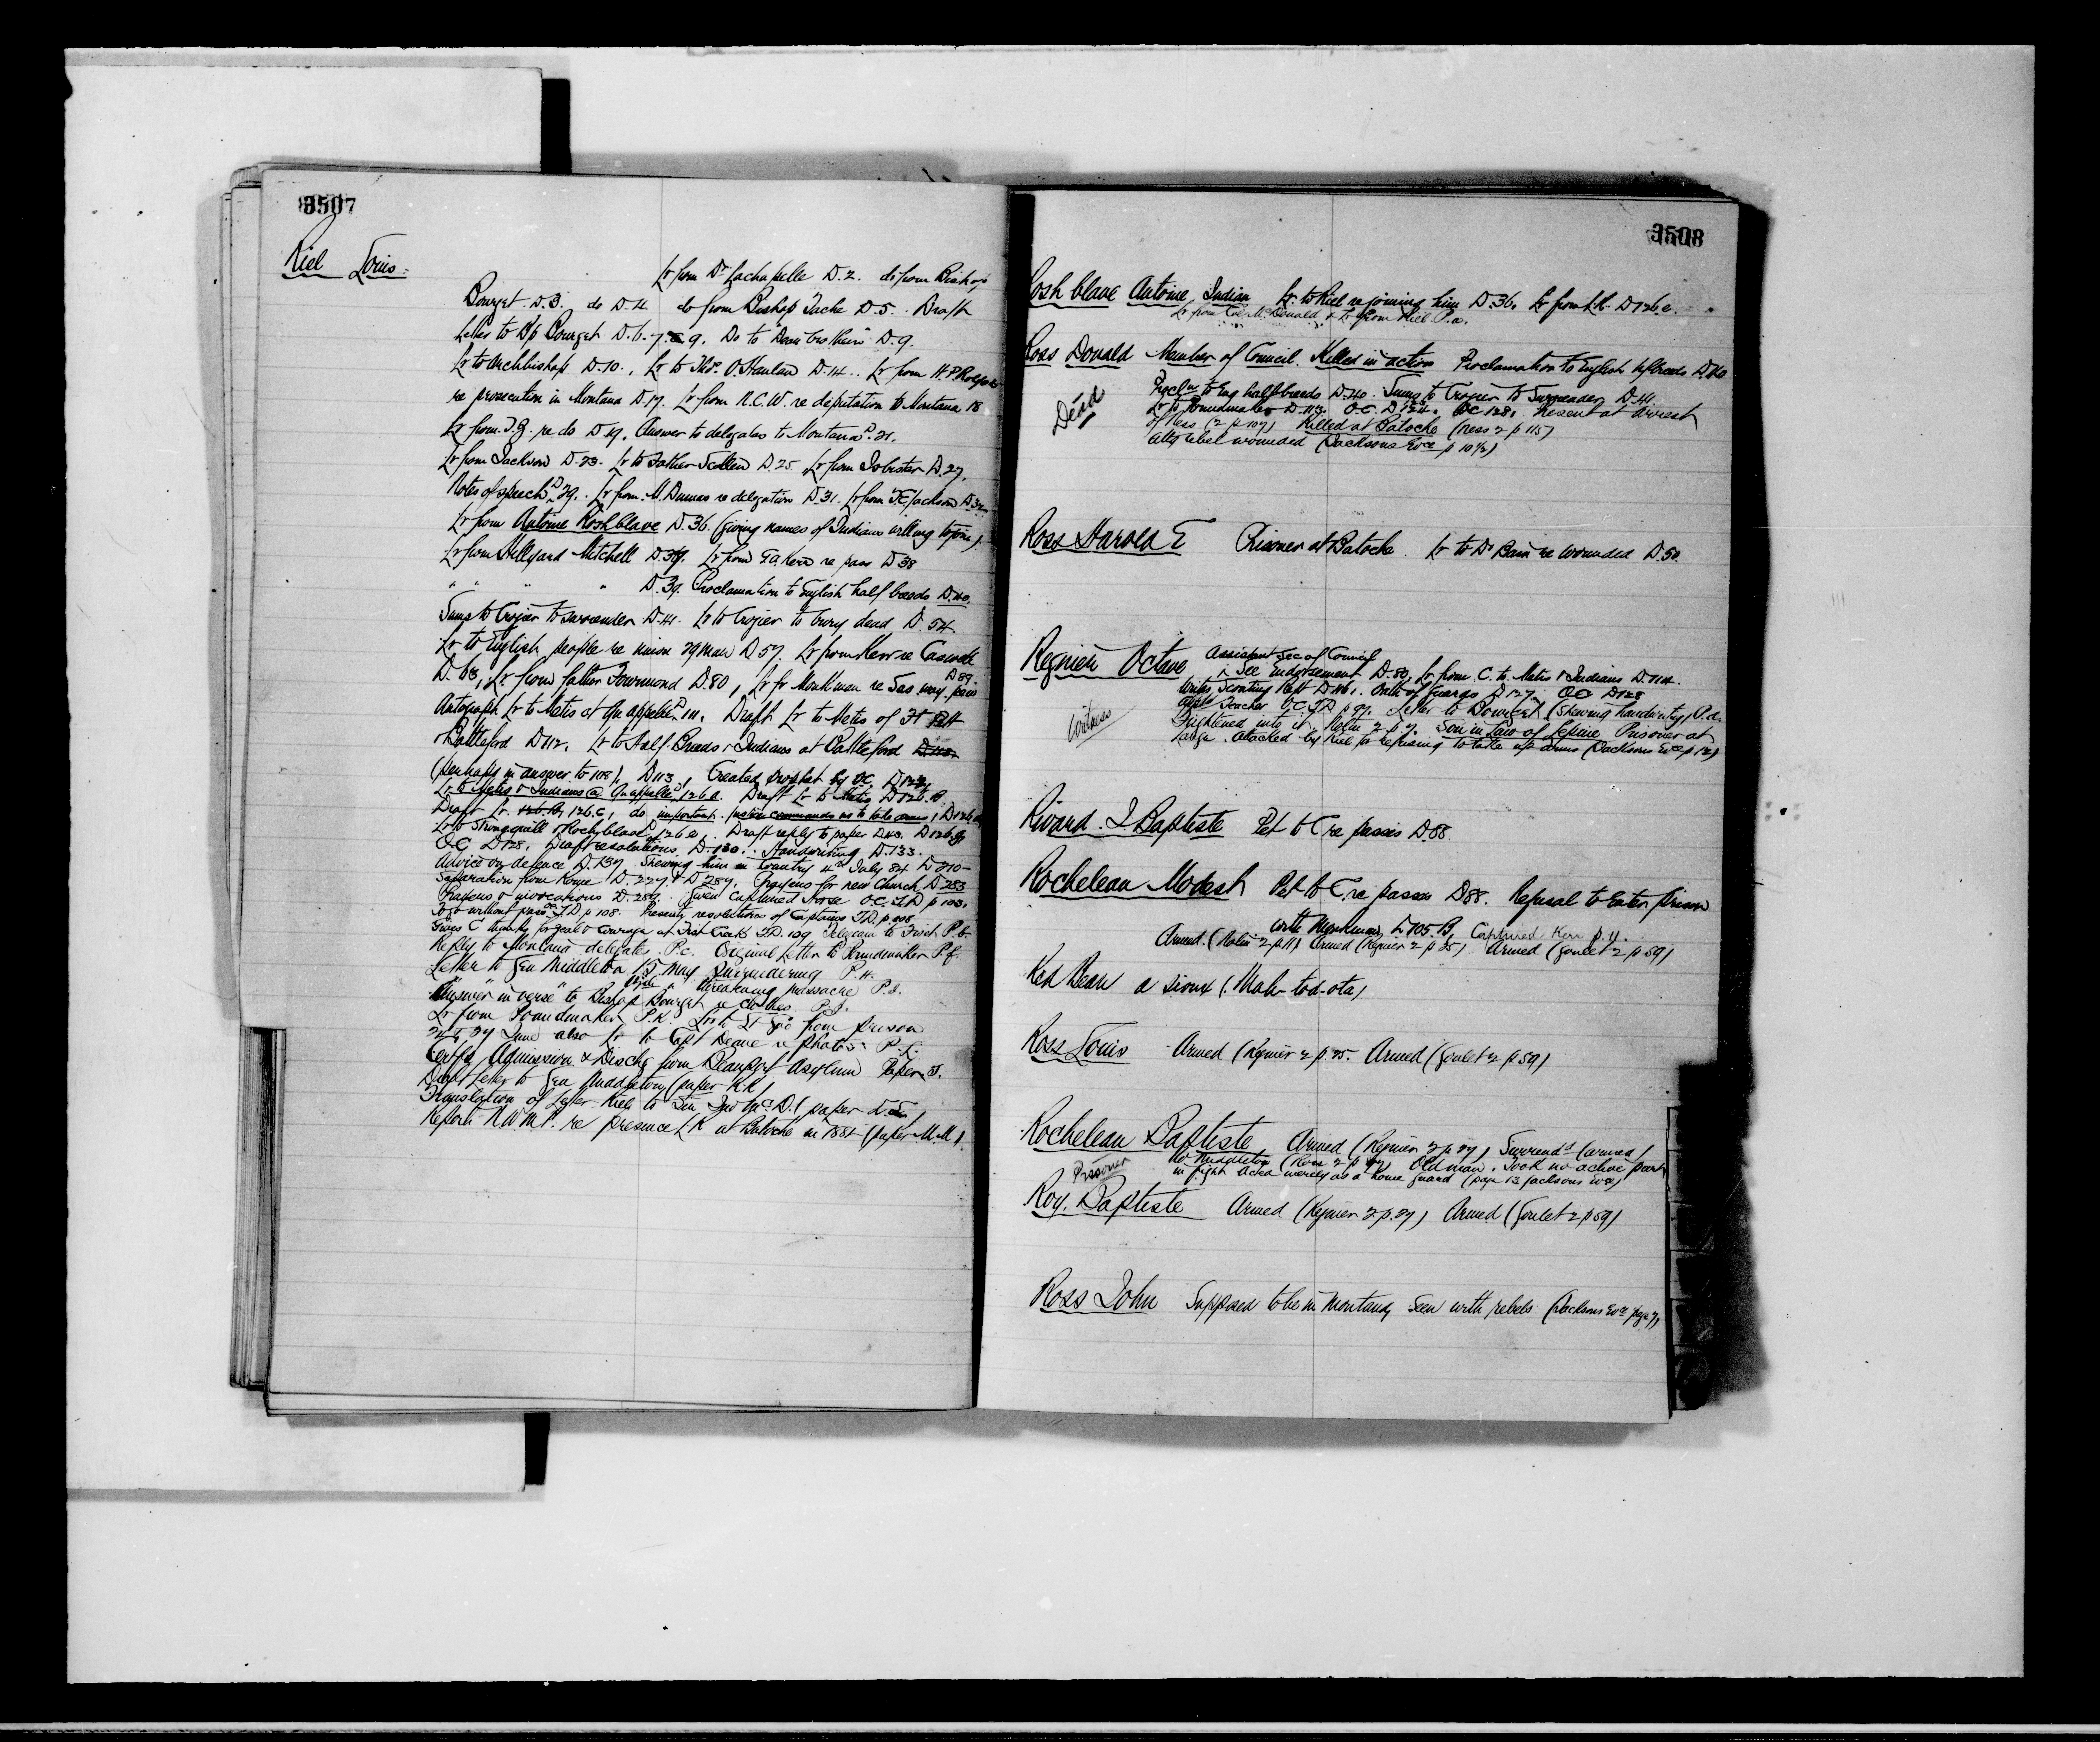 3507
Riel Louis:
Lr from Dr Lachapelle D.2. do from Bishop
Bourget D.3. do D.4. do from Bishop Tache D.5. Draft
Letter to Bp Bourget D.6-7 9. Do to Dear brothers D.9.
Lr to Archbishop D.10., Lr to Thos. O'Hanlan D.14.. Lr from H.P. 
re prosecution in Montana D.17. Lr from N.C.W. re deputation to Montana 18
Lr from J.G. re do D.19. Answer to delegates to Montana D.21.
Lr from Jackson D.23. Lr to Father Scollen D.25 Lr from Isbister D.27.
Notes of speech D.29. Lr from M. Dumas re delegation D.31. Lr from T.E. Jackson D.32
Lr from Antoine Roshblave D.36. (giving names of Indians willing to join)
Lr from Hillyard Mitchell D.37. Lr from Kerr re pass D38
" " " " D.39. Proclamation to English half breeds D.40.
Sums to Crozier to surrender D.41. Lr to Crozier to bury dead D.54
Lr to English people re union D57. Lr from Kerr re
D.63, Lr from father Fourmond D.80, Lr fr Monkman re Sas D89.
Autograph Lr to Metis at Qu'appelle D.111. Draft Lr to Metis of Ft Pitt
& Battleford D112. Lr to Half Breeds & Indians at Battleford D113
(perhaps in answer to 108), D113, Created prophet by OC,
Lr to Metis & Indians @ Qu'appelle D.126.a. Draft Lr to Metis D126.B.
Draft Lr. 126.B, 126.C, do important. Justice commands us to take arms, D126
Lr to Strongquill & Rochblave D126.e, Draft reply to paper D43.
OC D128. Draft resolutions D.130. Handwriting D.133.
Advice on defence D.137. Shewing him in Country 4th July 84 D210-
Separation from Rome D.227. & D287. Prayers for new Church D.283
Prayers & invocations D.289. Given Captured Horse O.C. T.D. p 103.
To go without pass T.D. p 108. Presents resolutions of Captains T.D. p
Gives C thanks for zeal & Courage at Fish Creek T.D. 109 Telegram to P.b.
Reply to Montana delegates P.c. Original Letter to Poundmaker P.f.
Letter to Gen Middleton 15 May surrendering P.H.
" " " threatening massacre P.I.
"Answer in verse" to Bishop Bourget re clothes P.J.
Lr from Poundmaker P.K. from prison
24 & 29 June also Lr to Capt Deane re photos P.L.
Certfs Admission & Dischg from Beauport Asylum Paper
Draft Letter to Gen Middleton (paper KK)
Translation of Letter Riel to (paper
Reports N.W.M.P. re presence L R at Batoche in 1884 (paper M.M.)
3508
Roshblave Antoine, Indian Lr. to Riel re joining him D.36. Lr from L.R. D126.e.
Lr from McDonald & Lr from Riel P.a.
Ross Donald Member of Council. Killed in action Proclamation to English hfbreeds D.40
Dead
Procln to Eng halfbreeds D.40. Sums to Crozier to Surrender D.41.
Lr to Poundmaker D.113. O.C. D124. OC 128. Present at arrest
of Ness (2 p 107) Killed at Batoche (Ness 2 p 115)
also rebel wounded (Jacksons Evce p 10½)
Ross Harold E Prisoner at Batoche. Lr to Dr Bain re wounded D.50.
Regnier Octave Assistant Sec of Council
See Endorsement D.80, Lr from C. to Metis & Indians D.114.
Witness
Writes Scouting Rept D.116. Oath of Guards D127. OC D128
also Teacher O.C. T.D. p 97. Letter to Bourget (Shewing handwritg) P.d.
Frightened into it Nolin 2 p 7. Son in law of Lepine Prisoner at
large. attacked by Riel for refusing to take up arms (Jacksons Evce p 12)
Rivard. J. Baptiste Pet to C re passes D.88.
Rocheleau Modest Pet to C, re passes D88. Refusal to Enter prison
with Monkman, D105.B, Captured Kerr p.11.
Armed. (Nolin 2 p 11) Armed (Regnier 2 p 25) Armed (Goulet 2 p 59)
Red Bean a Sioux (Mah-tod-ota)
Ross Louis Armed (Regnier 2 p 25. Armed (Goulet 2 p 59)
Rocheleau Baptiste Armed (Regnier 2 p 27) Surrendd (armed)
Prisoner
to Middleton (Ross 2 p Old man. Took no active part
in fight Acted merely as a home guard (page 13 Jacksons Evce)
Roy. Baptiste Armed (Regnier 2 p.27) Armed (Goulet 2 p 59)
Ross John Supposed to be in Montana, Seen with rebels (Jacksons Evce page 7)